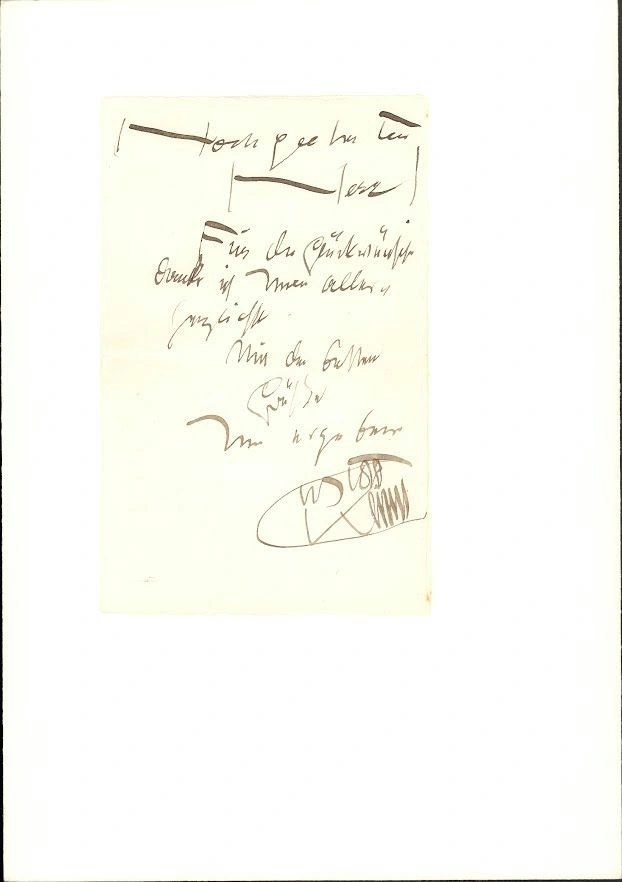 Hochgeehrter
Herr!
Für die Glückwünsche
danke ich Ihnen aller-
herzlichst.
Mit den besten
Grüßen
Ihr ergebener